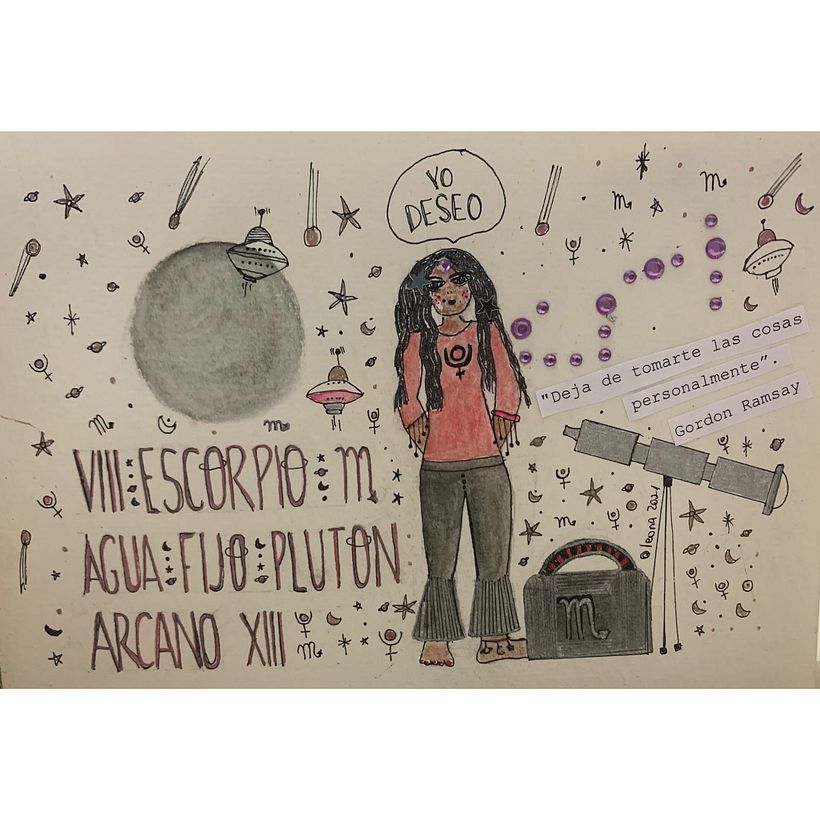 YO
DESEO
"Deja de tomarte las cosas
personalmente".
Gordon Ramsay
VIII ESCORPIO ♏
AGUA FIJO PLUTON
ARCANO XIII
@leona 2021